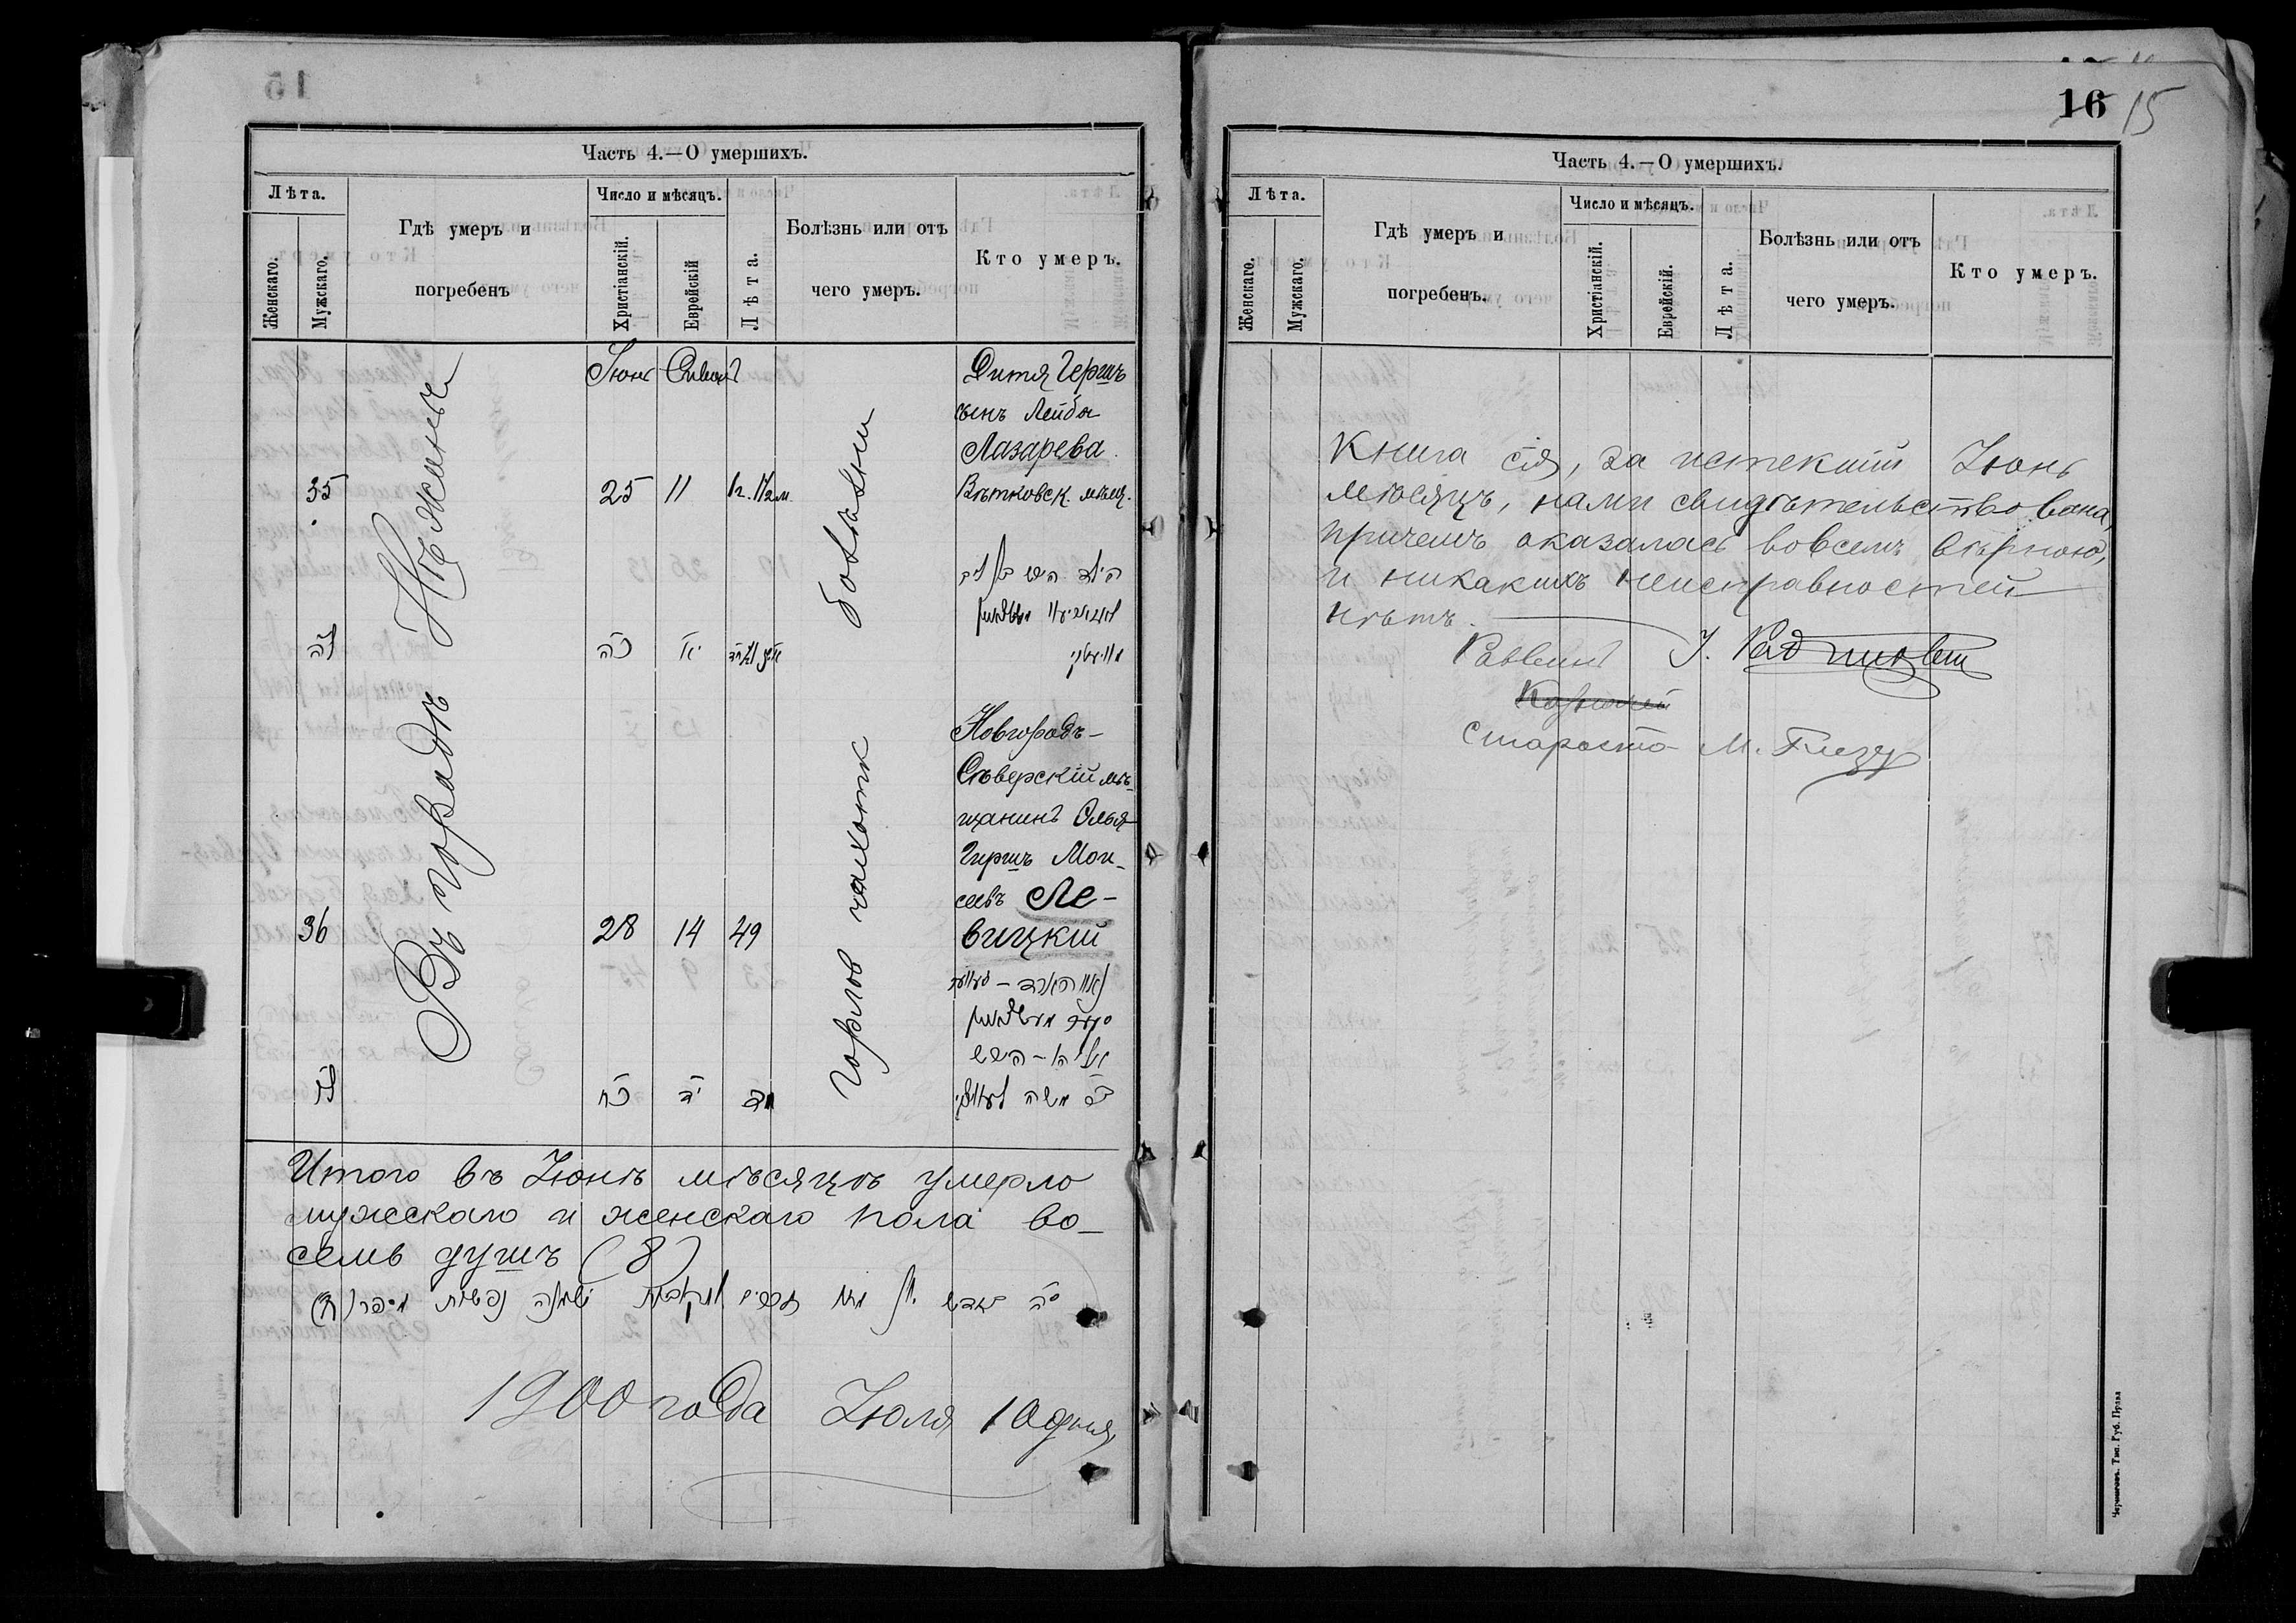 Часть 4.—О умершихъ.
Лѣта.
Женскаго.
Мужскаго.
Гдѣ умеръ и
погребенъ
Число и мѣсяцъ.
Христіанскій.
Еврейскій
Лѣта.
Болѣзнь или отъ
чего умеръ.
Кто умеръ.
Въ городѣ Нѣжинѣ
Іюнь Сиванъ
35
25 11
Дитя Гершъ
сынъ Лейбы
Лазарева
Вѣтковск. мѣщ.
לה
כה יא
36
28 14 49
горлов чахотк
Новгородъ-
Сѣверскій мѣ-
щанинъ Элья
Гиршъ Мои-
сеевъ Ле-
вицкій
לו
כח יד מט
Итого въ Іюнѣ мѣсяцѣ умерло
мужескаго и женскаго пола во-
семь душъ (8)
1900 года Іюля 10 дня,
16 15
Часть 4.—О умершихъ.
Лѣта.
Женскаго.
Мужскаго.
Гдѣ умеръ и
погребенъ.
Число и мѣсяцъ.
Христіанскій.
Еврейскій.
Лѣта.
Болѣзнь или отъ
чего умеръ.
Кто умеръ.
Книга сія, за истекшій Іюнь
мѣсяцъ, нами свидѣтельствована,
причемъ оказалась вовсемъ вѣрною,
и никакихъ неисправностей
нѣтъ.
Раввинъ
Казначей
Староста М.
Черниговъ. Тип. Губ. Прав